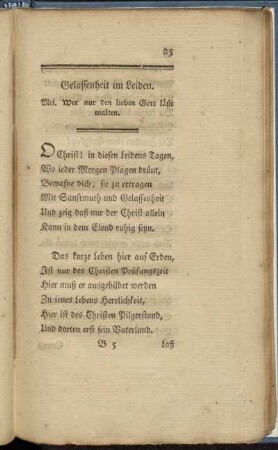 25
Gelassenheit im Leiden.
Mel. Wer nur den lieben Gott läßt
walten.
O Christ! in diesen Leidens Tagen,
Wo ieder Morgen Plagen dräut,
Bewafne dich, sie zu ertragen
Mit Sanftmuth und Gelassenheit
Und zeig daß nur der Christ allein
Kann in dem Elend ruhig seyn.
Das kurze Leben hier auf Erden,
Ist nur des Christen Prüfungszeit
Hier muß er ausgebildet werden
Zu jenes Lebens Herrlichkeit,
Hier ist des Christen Pilgerstand,
Und dorten erst sein Vaterland.
B 5 Laß